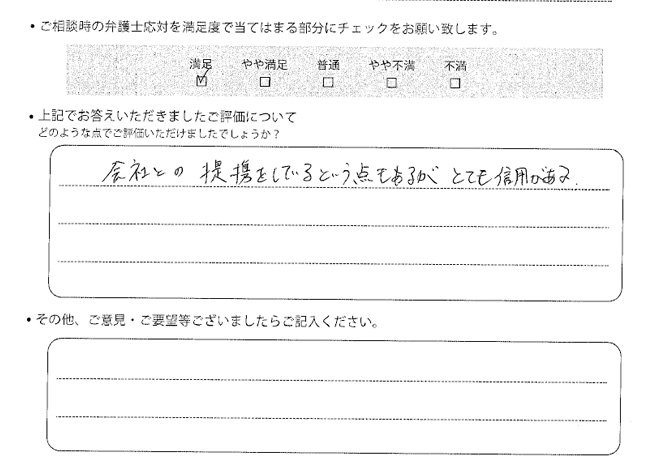 ・ご相談時の弁護士応対を満足度で当てはまる部分にチェックをお願い致します。
満足 やや満足 普通 やや不満 不満
☑ □ □ □ □
・上記でお答えいただきましたご評価について
どのような点でご評価いただけましたでしょうか？
会社との提携をしているという点もあるが とても信用がある.
・その他、ご意見・ご要望等ございましたらご記入ください。